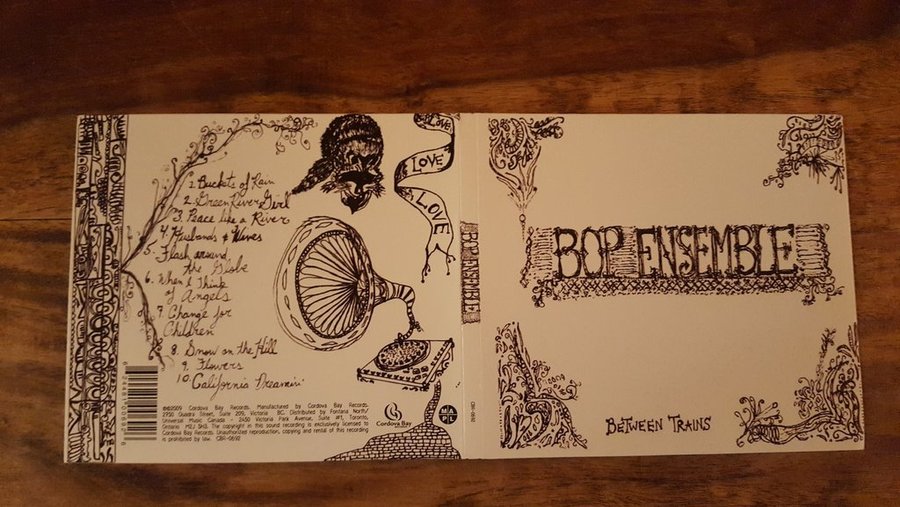 LOVE
LOVE
LOVE
1. Buckets of Rain
2. Green River Girl
3. Peace like a River
4. Husbands & Wives
5. Flash around
the Globe
6. When I Think
of Angels
7. Change for
Children
8. Snow on the Hill
9. Flowers
10. California Dreamin'
℗©2009 Cordova Bay Records. Manufactured by Cordova Bay Records,
2750 Quadra Street, Suite 209, Victoria BC. Distributed by Fontana North/
Universal Music Canada - 2450 Victoria Park Avenue, Suite #1, Toronto,
Ontario M2J 5H3. The copyright in this sound recording is exclusively licensed to
Cordova Bay Records. Unauthorized reproduction, copying and rental of this recording
is prohibited by law. CBR-0692
Cordova Bay
MAPL
BOP ENSEMBLE
CBR-0692
BOP ENSEMBLE
BETWEEN TRAINS